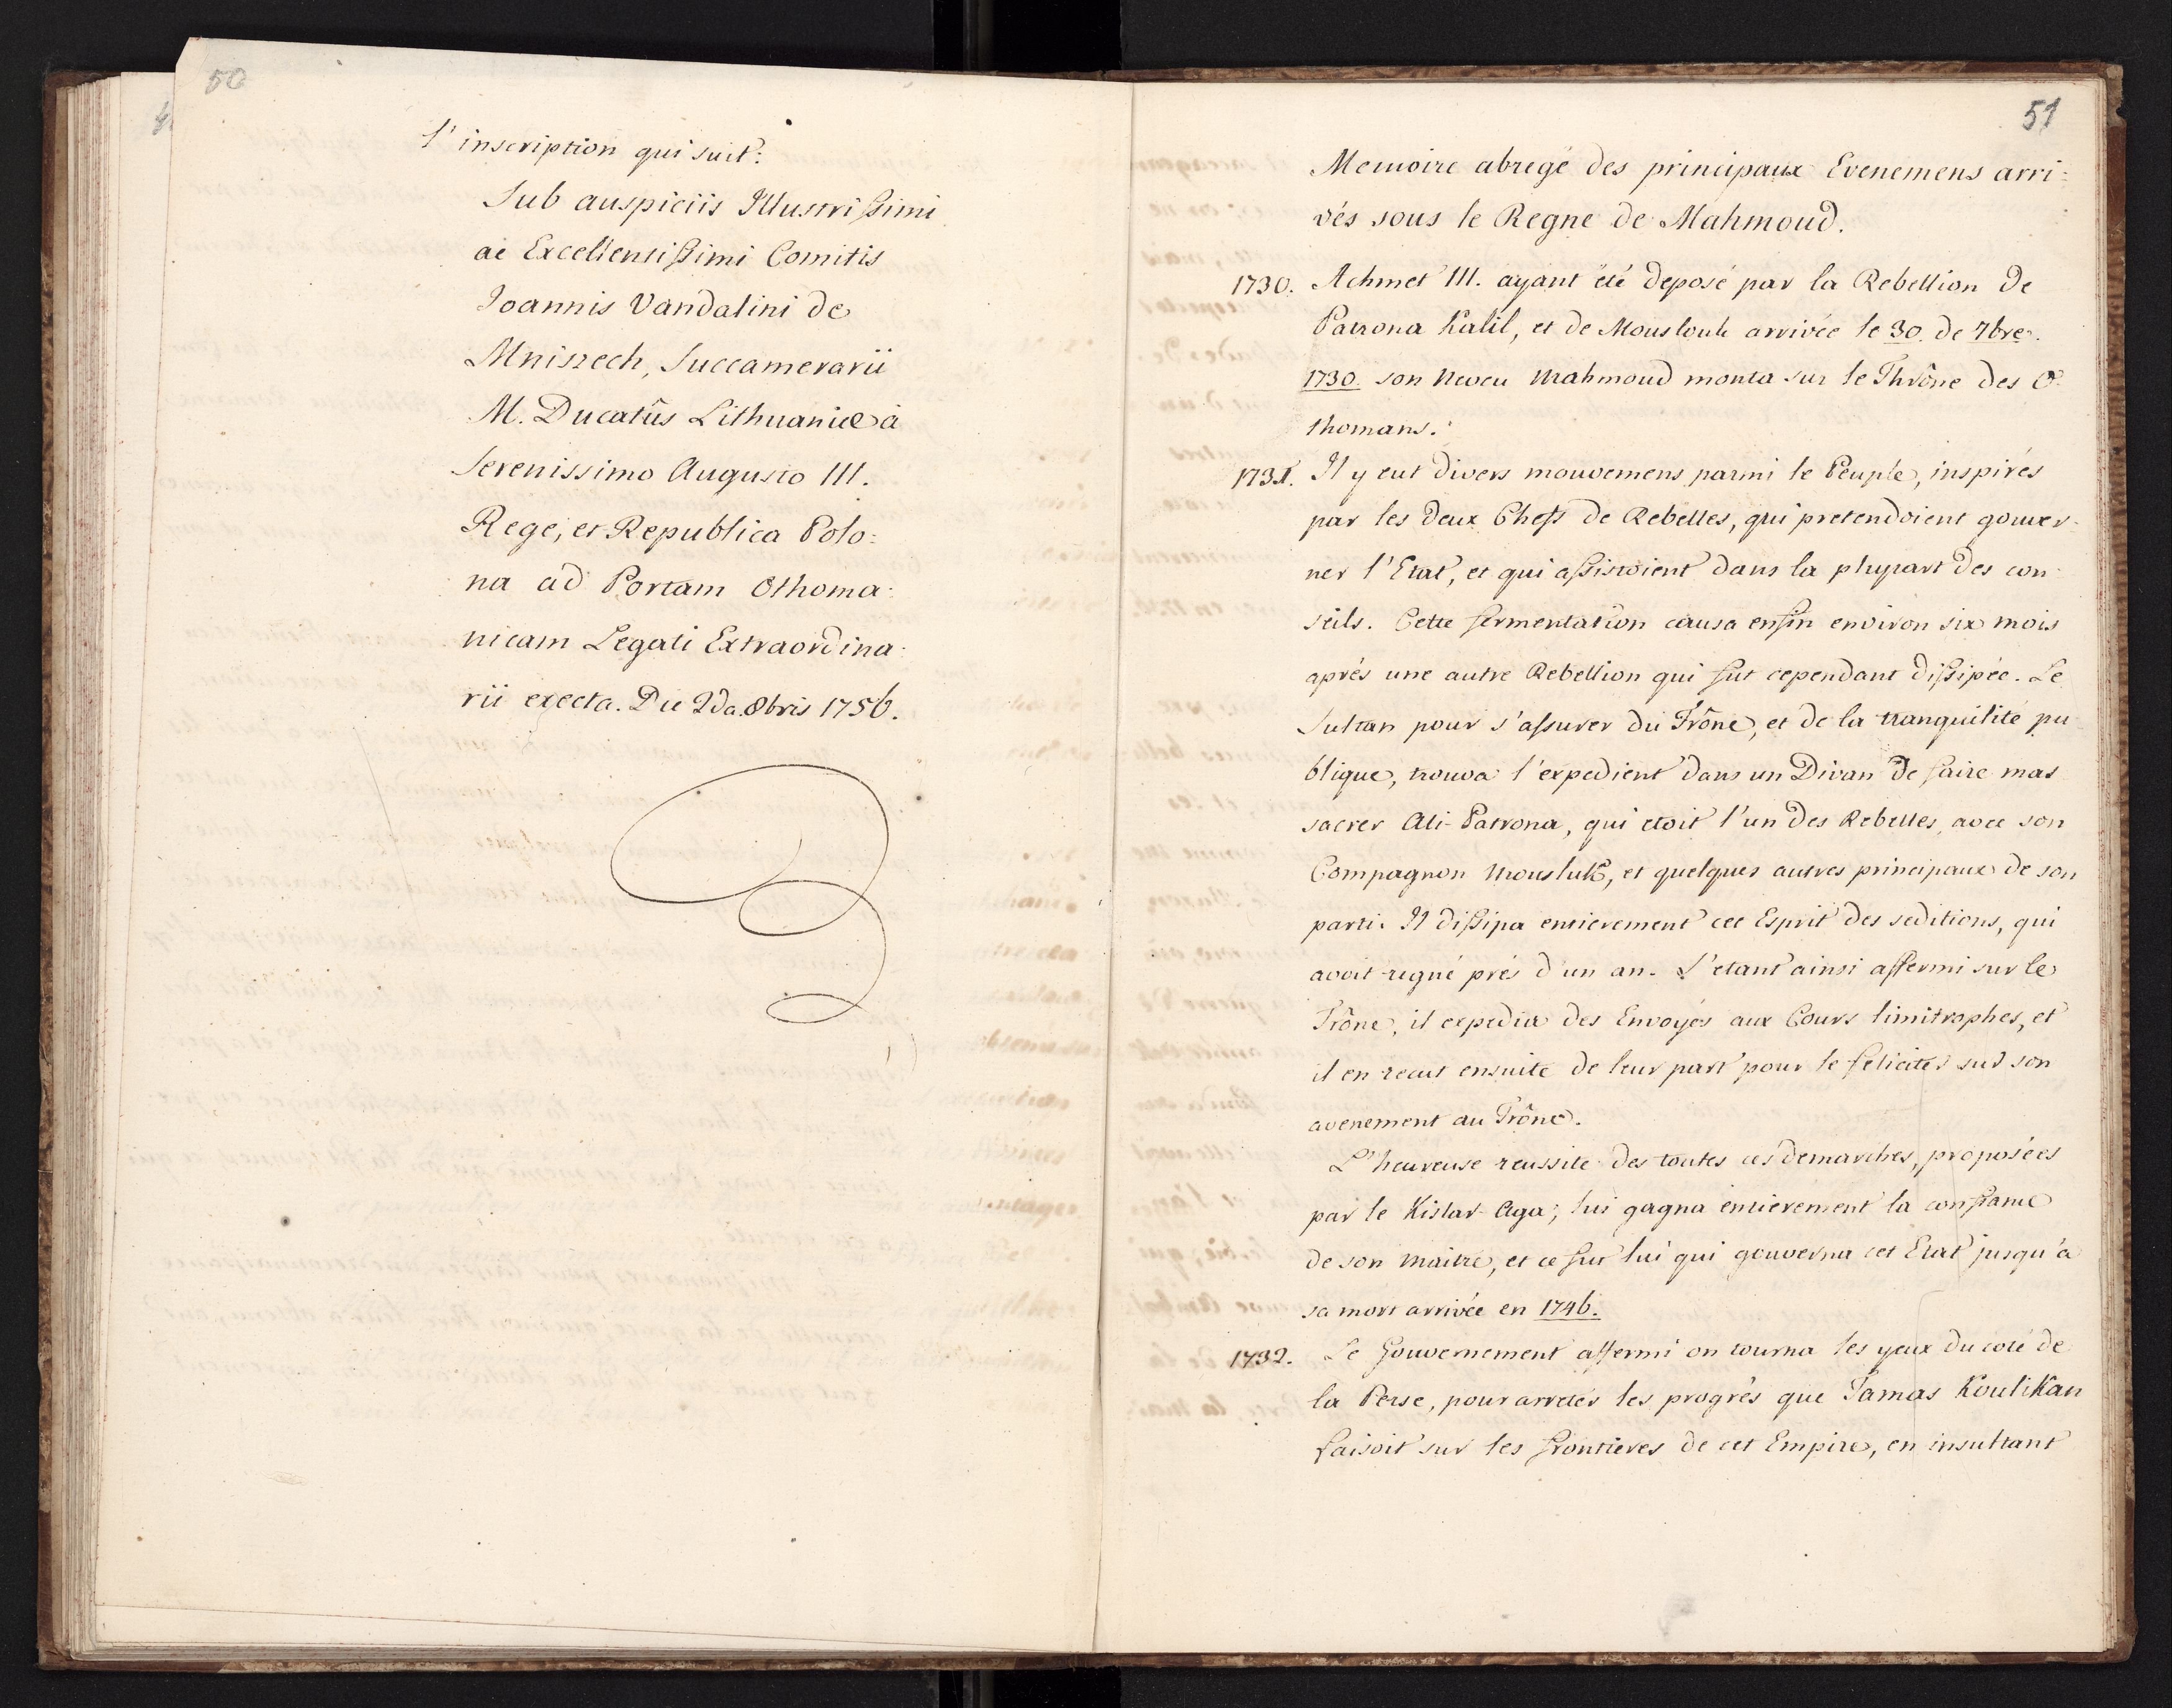 50
l'inscription qui suit:
Sub auspiciis Illustrissimi
ac Excellentissimi Comitis
Joannis Vandalini de
Mniszech, Succamerarii
M. Ducatûs Lithuaniæ à
Serenissimo Augusto III.
Rege, et Republica Polo:
na ad Portam Othoma:
nicam Legati Extraordina:
rii erecta. Die 2da. 8bris 1756.
51
Memoire abregé des principaux Evenemens arri:
vés sous le Regne de Mahmoud.
1730. Achmet III. ayant été deposé par la Rebellion de
Patrona Kalil, et de Mouslouh arrivée le 30. de 7bre.
1730. son Neveu Mahmoud monta sur le Thrône des O:
thomans.
1731. Il y eut divers mouvemens parmi le Peuple, inspirés
par les deux Chefs de Rebelles, qui pretendoient gouver-
ner l'Etat, et qui assistoient dans la plupart des con-
seils. Cette fermentation causa enfin environ six mois
aprés une autre Rebellion qui fut cependant dissipée. Le
Sultan pour s'assurer du Trône, et de la tranquilité pu
blique, trouva l'expedient dans un Divan de faire mas
sacrer Ali-Patrona, qui etoit l'un des Rebelles, avec son
Compagnon Mousluk, et quelques autres principaux de son
parti. Il dissipa entierement cet Esprit des seditions, qui
avoit regné prés d'un an. S'etant ainsi affermi sur le
Trône, il expedia des Envoyés aux Cours limitrophes, et
il en recut ensuite de leur part pour le feliciter sur son
avenement au Trône.
L'heureuse reussite des toutes ces demarches, proposées
par le Kislar-Aga, lui gagna entierement la confiance
de son Maitre, et ce fut lui qui gouverna cet Etat jusqu'à
sa mort arrivée en 1746.
1732. Le Gouvernement affermi on tourna les yeux du coté de
la Perse, pour arreter les progrés que Tamas Koulikan
faisoit sur les frontieres de cet Empire, en insultant